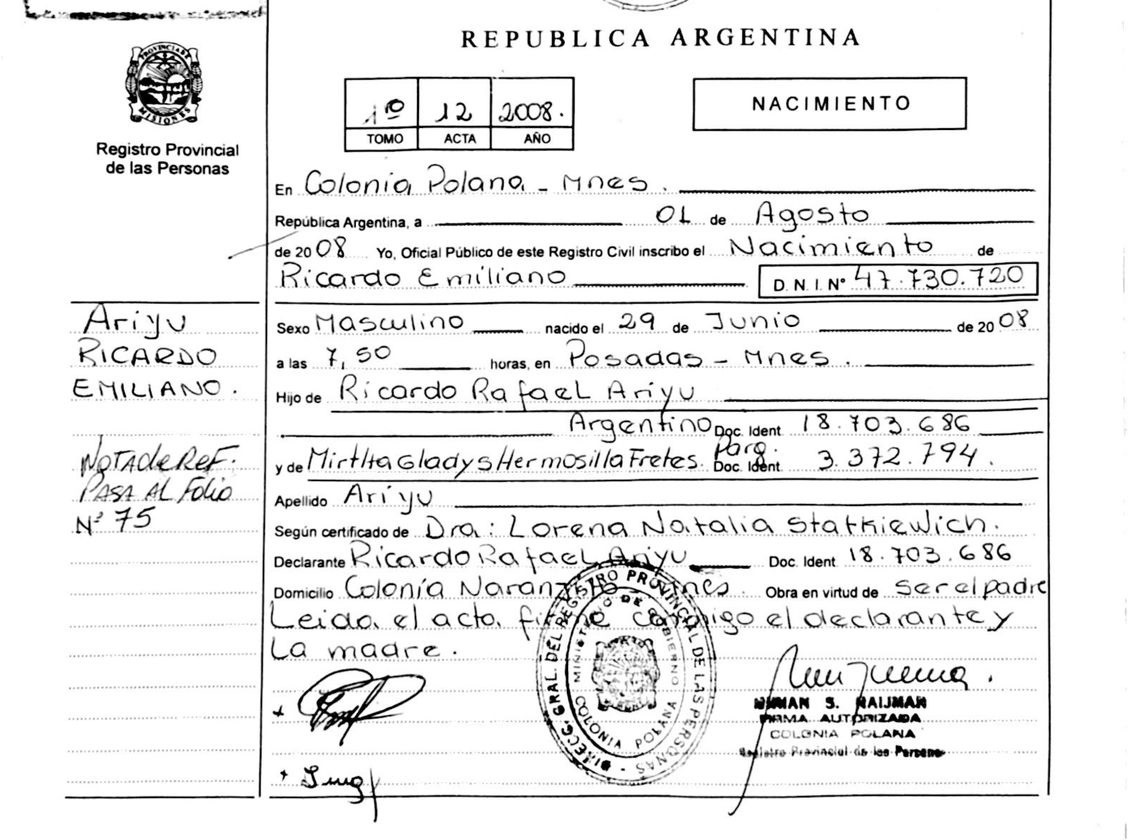 REPUBLICA ARGENTINA
PROVINCIA DE MISIONES
Registro Provincial
de las Personas
1ro 12 2008.
TOMO ACTA AÑO
NACIMIENTO
En Colonia Polana - Mnes.
República Argentina, a 01 de Agosto
de 2008 Yo, Oficial Público de este Registro Civil inscribo el Nacimiento de
Ricardo Emiliano D.N.I.Nº 47.730.720
Sexo Masculino nacido el 29 de Junio de 2008
a las 7,50 horas, en Posadas - Mnes.
Hijo de Ricardo Rafael Ariyu
Argentino Doc. Ident 18.703.686
y de Mirtha Gladys Hermosilla Fretes. Parg. Doc. Ident 3.372.794.
Apellido Ariyu
Según certificado de Dra: Lorena Natalia Statkiewich.
Declarante Ricardo Rafael Ariyu Doc. Ident 18.703.686
Domicilio Colonia Naranjito Mnes Obra en virtud de ser el padre
Leida el acta firme conmigo el declarante y
La madre.
Ariyu
RICARDO
EMILIANO.
NOTA de REF.
PASA AL Folio
Nº 75
DIRECC. GRAL. DEL REGISTRO PROVINCIAL DE LAS PERSONAS
MINISTERIO DE GOBIERNO
COLONIA POLANA
MIRIAN S. NAIJMAN
FIRMA AUTORIZADA
COLONIA POLANA
Registro Provincial de las Personas